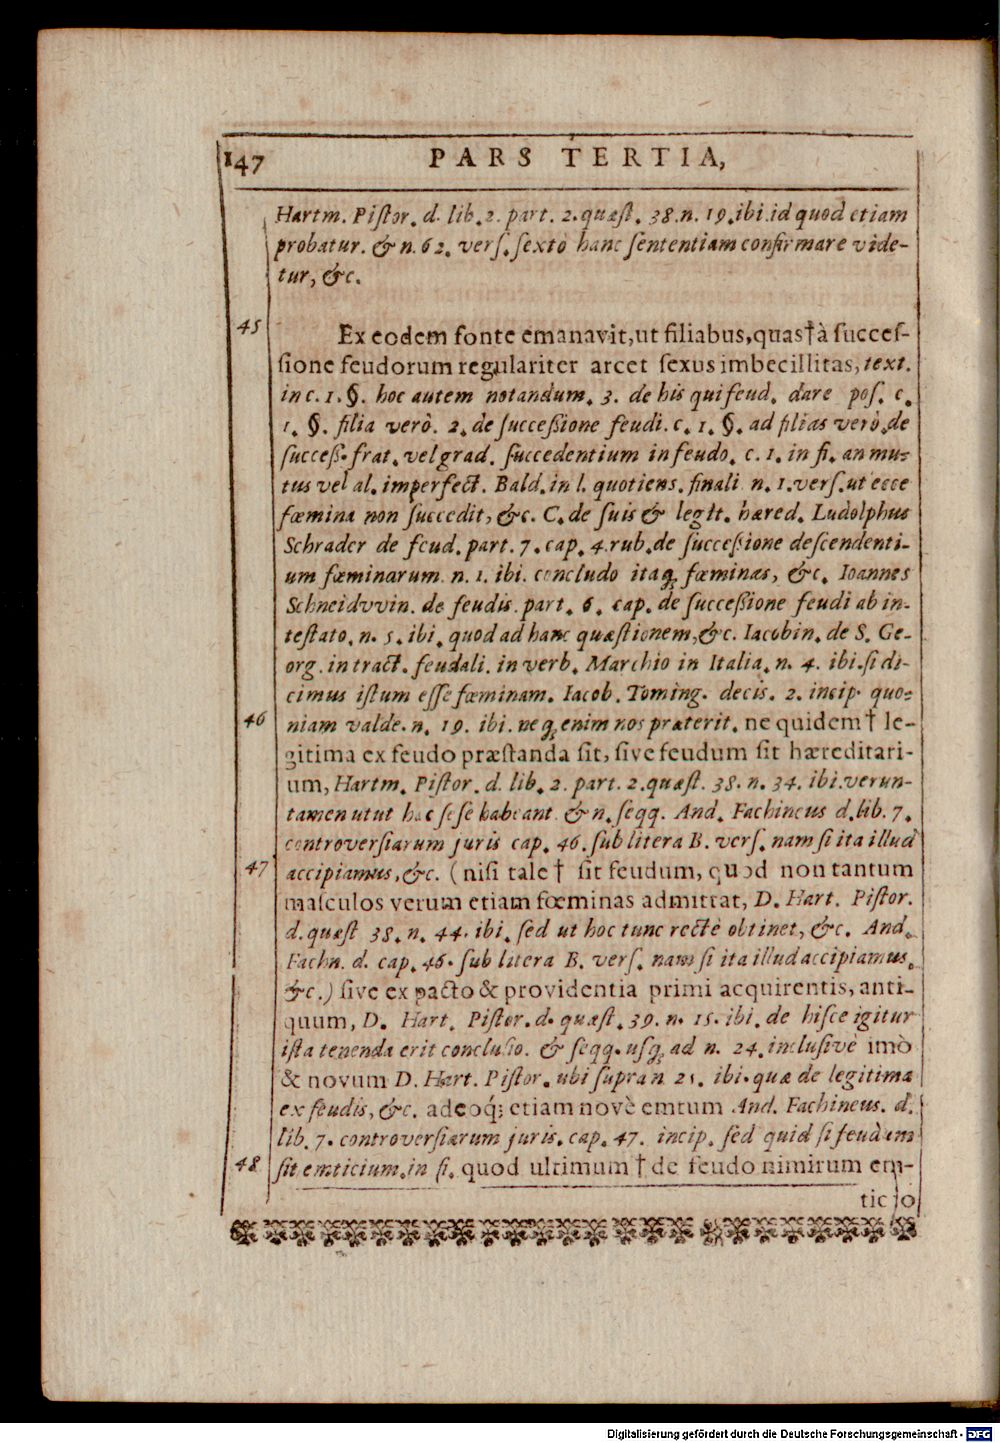 147 PARS TERTIA,
Hartm. Piſtor. d. lib. 2. part. 2. quæſt. 38. n. 19. ibi. id quod etiam
probatur. & n. 62. verſ. ſextò hanc ſententiam confirmare vide-
tur, &c.
45 Ex eodem fonte emanavit, ut filiabus, quas † à ſucceſ-
ſione feudorum regulariter arcet ſexus imbecillitas, text.
in c. 1. §. hoc autem notandum. 3. de his qui feud. dare poſ. c.
1. §. filia verò. 2. de ſucceßione feudi. c. 1. §. ad filias verò. de
ſucceß. frat. vel grad. ſuccedentium in feudo. c. 1. in fi. an mu-
tus vel al. imperfect. Bald. in l. quotiens. finali n. 1. verſ. ut ecce
fœmina non ſuccedit, &c. C. de ſuis & legit. hæred. Ludolphus
Schrader de feud. part. 7. cap. 4. rub. de ſucceßione deſcendenti-
um fœminarum n. 1. ibi. concludo itaq; fœminas, &c. Ioannes
Schneidvvin. de feudis. part. 6. cap. de ſucceßione feudi ab in-
teſtato. n. 5. ibi. quod ad hanc quæſtionem, &c. Iacobin. de S. Ge-
org. in tract. feudali. in verb. Marchio in Italia. n. 4. ibi. ſi di-
cimus iſtum eſſe fœminam. Iacob. Toming. decis. 2. incip. quo-
46 niam valde. n. 19. ibi. neq; enim nos præterit. ne quidem † le-
gitima ex feudo præſtanda ſit, ſive feudum ſit hæreditari-
um, Hartm. Piſtor. d. lib. 2. part. 2. quæſt. 38. n. 34. ibi. verun-
tamen utut hæc ſeſe habeant. & n. ſeqq. And. Fachineus d. lib. 7.
controverſiarum juris cap. 46. ſub litera B. verſ. nam ſi ita illud
47 accipiamus, &c. (niſi tale † ſit feudum, quod non tantum
maſculos verum etiam fœminas admittat, D. Hart. Piſtor.
d. quæſt 38. n. 44. ibi. ſed ut hoc tunc rectè obtinet, &c. And.
Fachn. d. cap. 46. ſub litera B. verſ. nam ſi ita illud accipiamus.
&c.) ſive ex pacto & providentia primi acquirentis, anti-
quum, D. Hart. Piſtor. d. quæſt. 39. n. 15. ibi. de hiſce igitur
iſta tenenda erit concluſio. & ſeqq. uſq; ad n. 24. incluſivè imò
& novum D. Hart. Piſtor. ubi ſupra n 25. ibi. quæ de legitima
ex feudis, &c. adeoq́; etiam novè emtum And. Fachineus. d.
lib. 7. controverſiarum juris. cap. 47. incip. ſed quid ſi feudum
48 ſit emticium. in fi. quod ultimum † de feudo nimirum em-
ticio
Digitalisierung gefördert durch die Deutsche Forschungsgemeinschaft - DFG